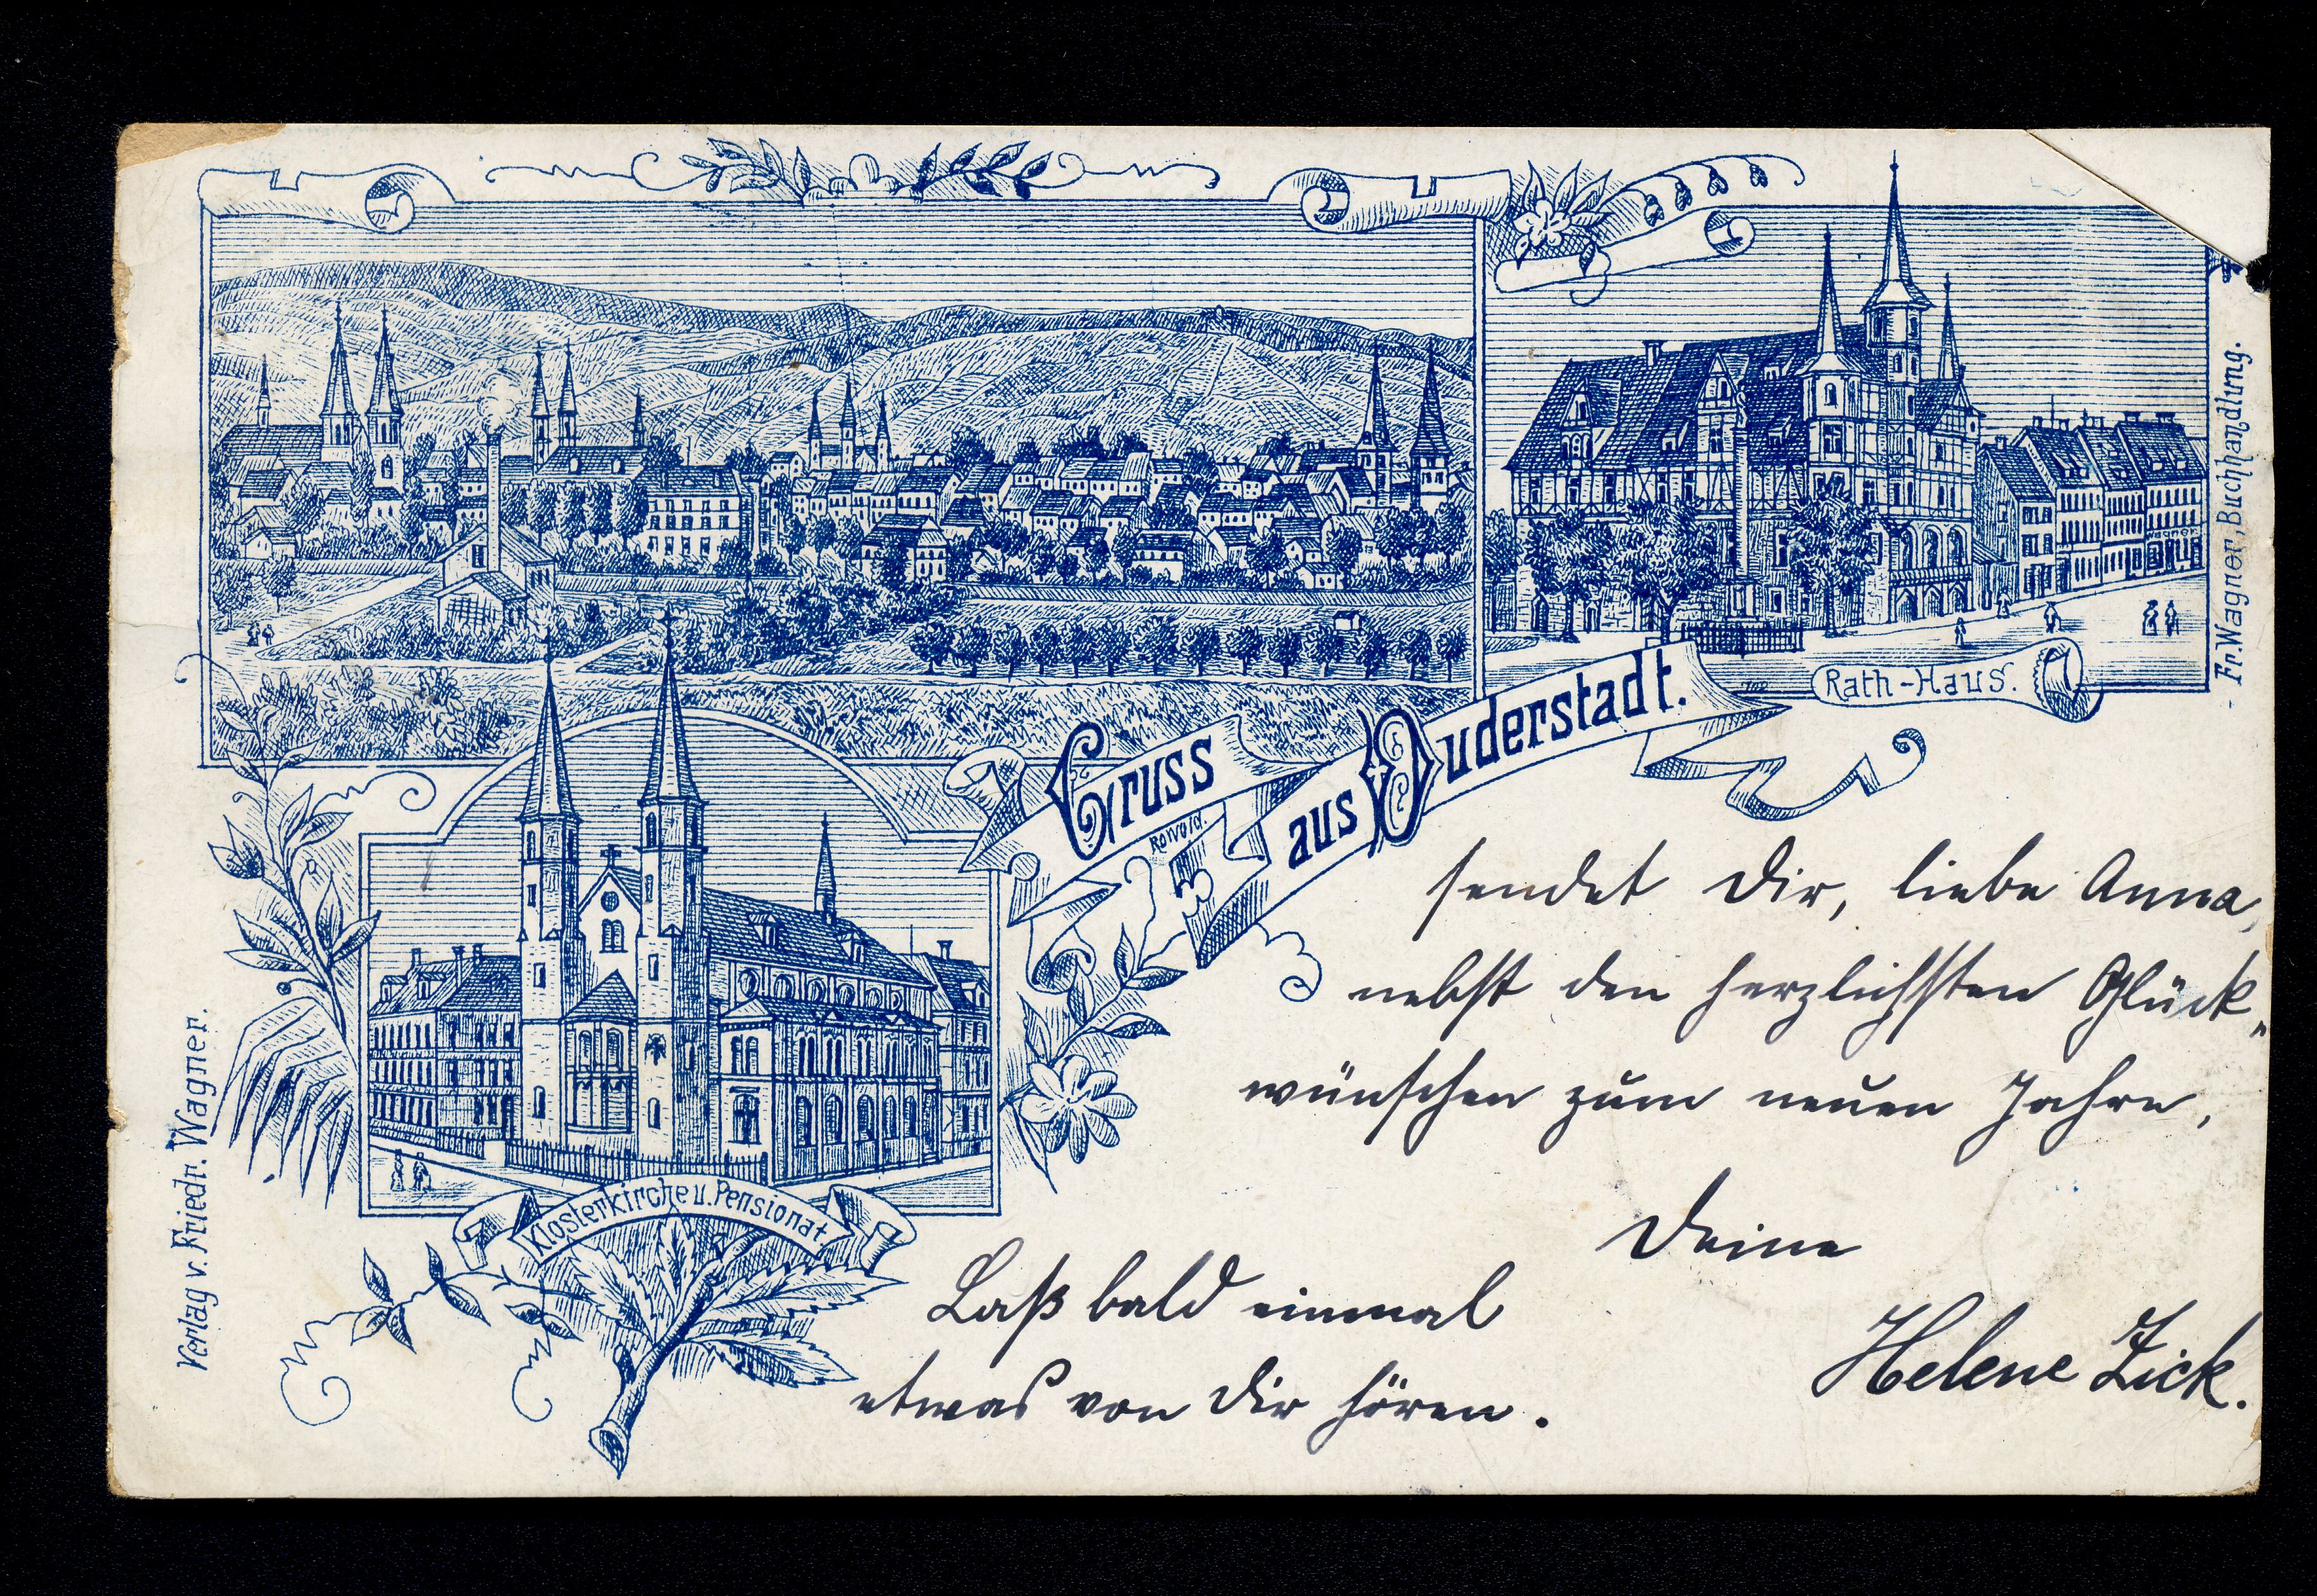 Gruss
aus Duderstadt.
Rath-Haus.
Fr. Wagner, Buchhandlung.
Wagner
Klosterkirche u. Pensionat.
Verlag v. Friedr. Wagner.
sendet Dir, liebe Anna,
nebst den herzlichsten Glück„
wünschen zum neuen Jahre,
Deine
Helene Zick.
Laß bald einmal
etwas von Dir hören.